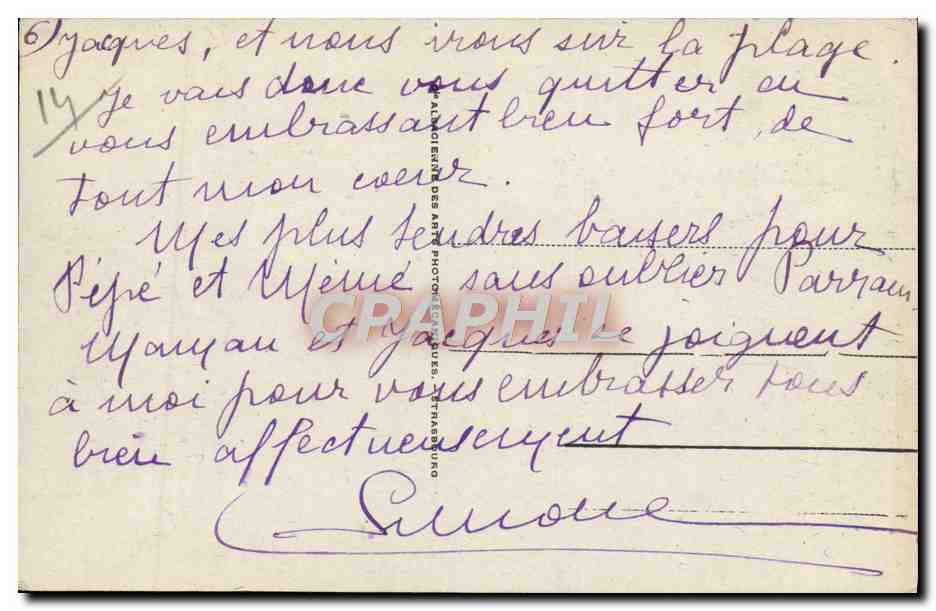 6) Jacques, et nous irons sur la plage.
14/
Je vais donc vous quitter en
vous embrassant bien fort, de
tout mon coeur.
Mes plus tendres baisers pour
Pépé et Mémé sans oublier Parrain
Maman et Jacques se joignent
à moi pour vous embrasser tous
bien affectueusement
Simone
ALSACIENNE DES ARTS PHOTOMÉCANIQUES, STRASBOURG
CRAPHIL